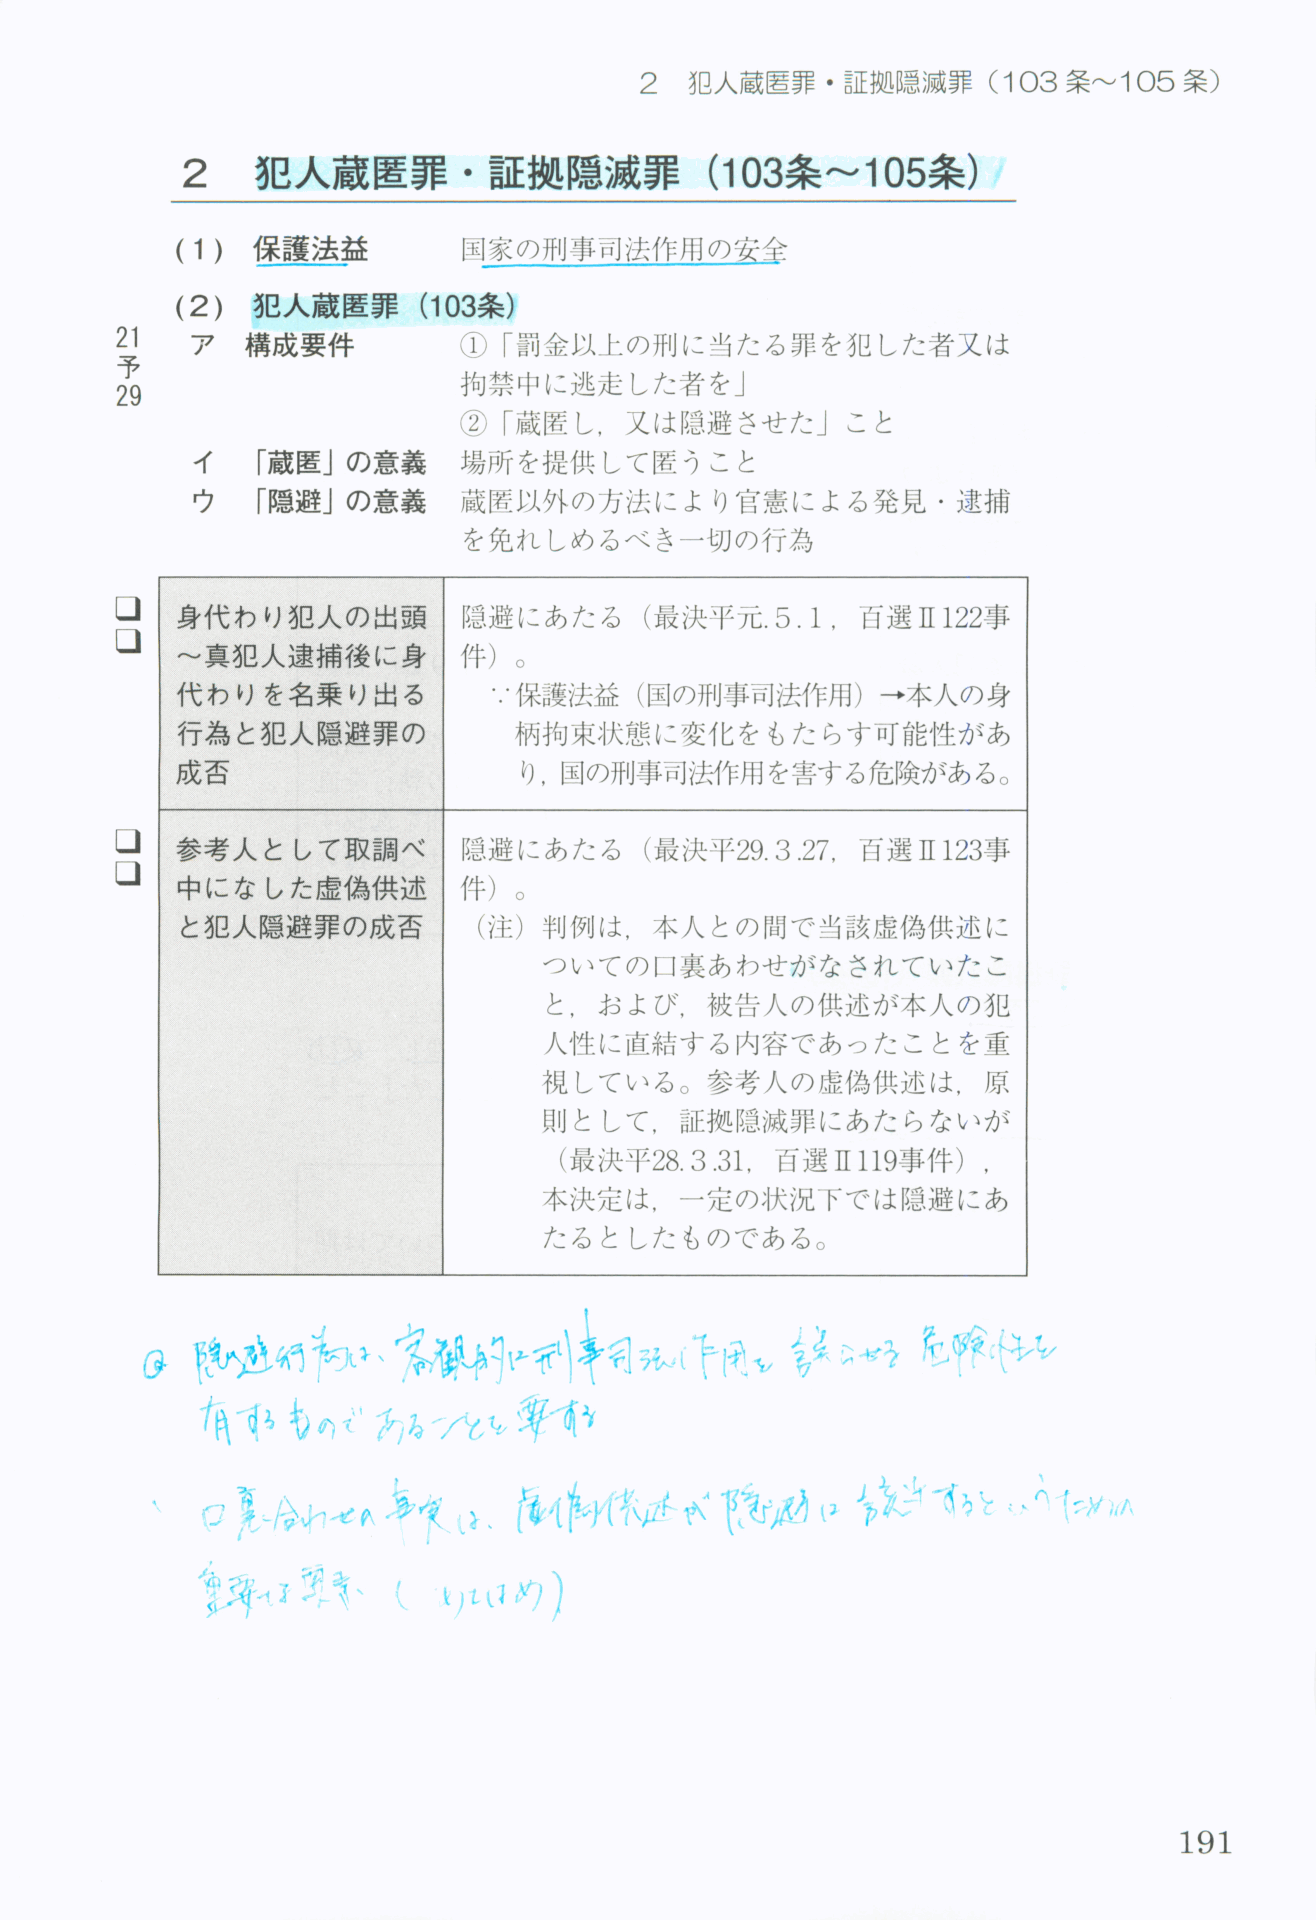 2 犯人蔵匿罪・証拠隠滅罪（103条〜105条）
2 犯人蔵匿罪・証拠隠滅罪（103条〜105条）
(1) 保護法益 国家の刑事司法作用の安全
(2) 犯人蔵匿罪（103条）
21
予
29
ア 構成要件 ①「罰金以上の刑に当たる罪を犯した者又は
拘禁中に逃走した者を」
②「蔵匿し，又は隠避させた」こと
イ 「蔵匿」の意義 場所を提供して匿うこと
ウ 「隠避」の意義 蔵匿以外の方法により官憲による発見・逮捕
を免れしめるべき一切の行為
身代わり犯人の出頭
〜真犯人逮捕後に身
代わりを名乗り出る
行為と犯人隠避罪の
成否
隠避にあたる（最決平元.5.1，百選Ⅱ122事
件）。
∵保護法益（国の刑事司法作用）→本人の身
柄拘束状態に変化をもたらす可能性があ
り，国の刑事司法作用を害する危険がある。
参考人として取調べ
中になした虚偽供述
と犯人隠避罪の成否
隠避にあたる（最決平29.3.27，百選Ⅱ123事
件）。
（注）判例は，本人との間で当該虚偽供述に
ついての口裏あわせがなされていたこ
と，および，被告人の供述が本人の犯
人性に直結する内容であったことを重
視している。参考人の虚偽供述は，原
則として，証拠隠滅罪にあたらないが
（最決平28.3.31，百選Ⅱ119事件），
本決定は，一定の状況下では隠避にあ
たるとしたものである。
隠避行為は、客観的に刑事司法作用を誤らせる危険性を
有するものであることを要する
口裏合わせの事実は、虚偽供述が隠避に該当するというための
重要な要素（あてはめ）
191